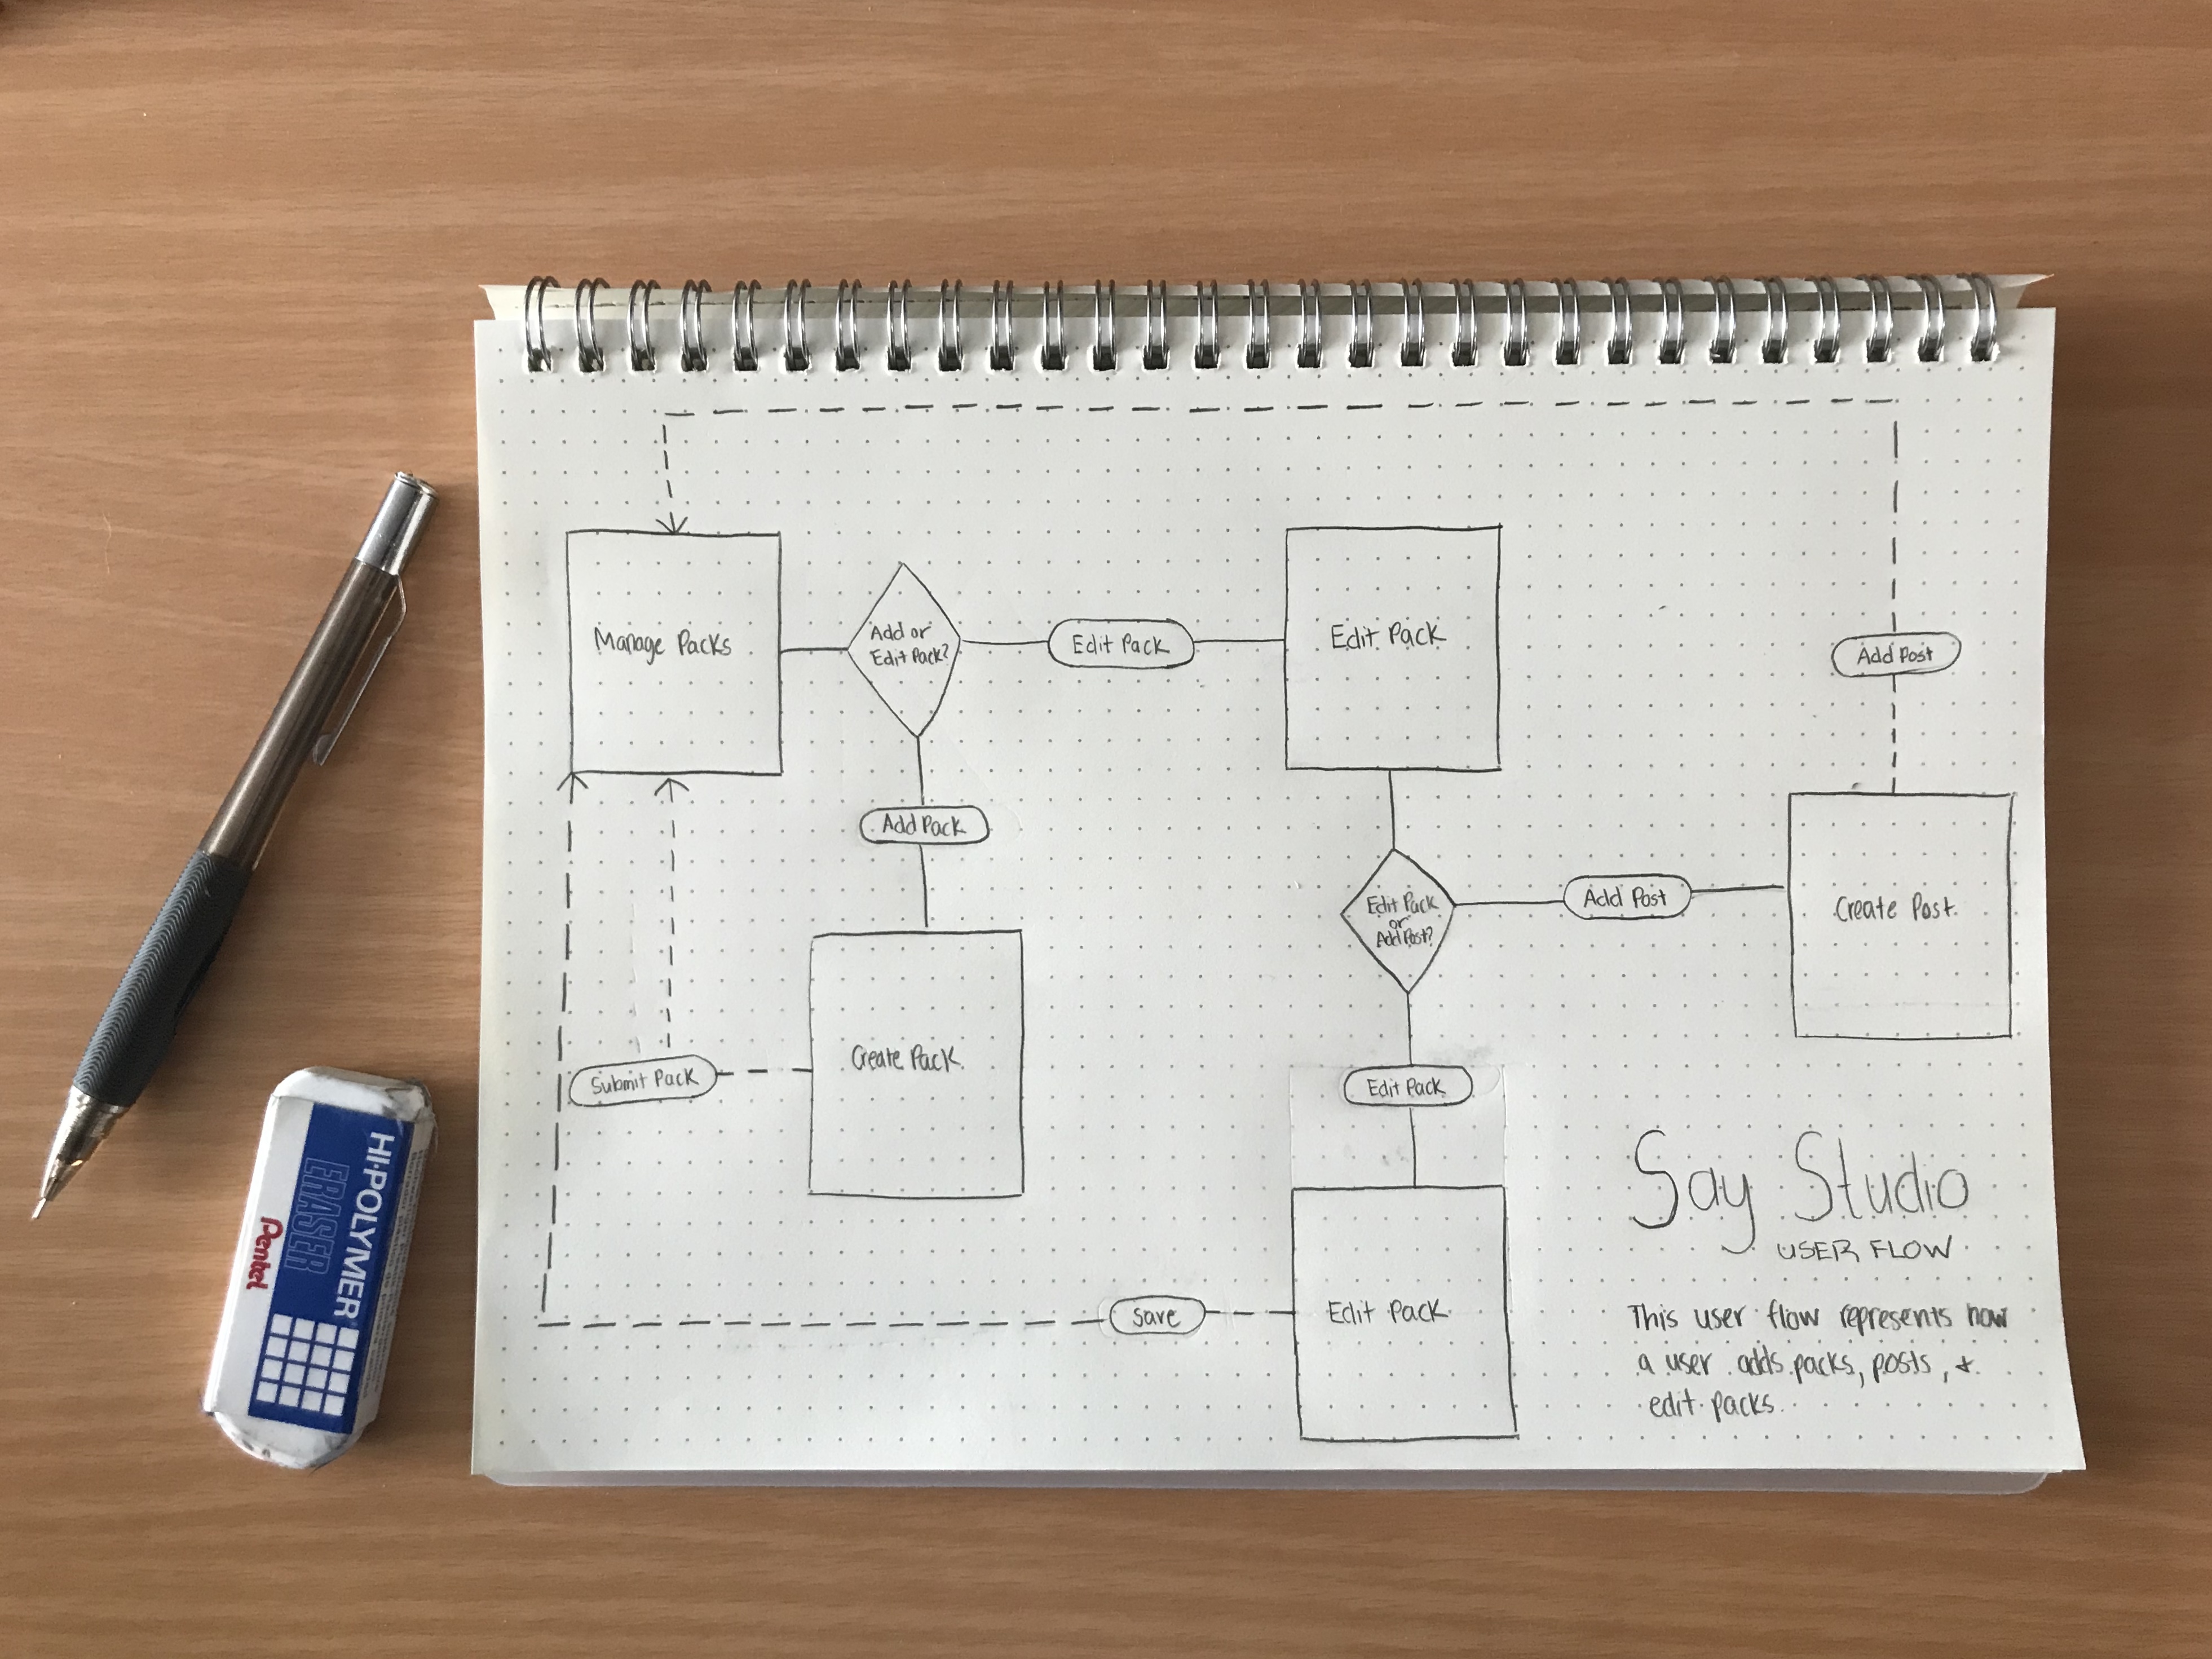 Manage Packs
Add or
Edit Pack?
Edit Pack
Edit Pack
Add Post
Add Pack
Edit Pack
or
Add Post?
Add Post
Create Post
Create Pack
Submit Pack
Edit Pack
Save
Edit Pack
Say Studio
USER FLOW
This user flow represents how
a user adds packs, posts, &
edit packs.
HI-POLYMER
ERASER
Pentel